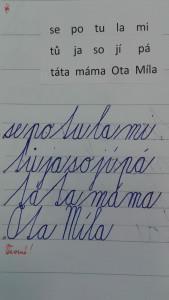 se po tu la mi
tů ja so jí pá
táta máma Ota Míla
se po tu la mi
tů ja so jí pá
tá ta máma
Ota Míla